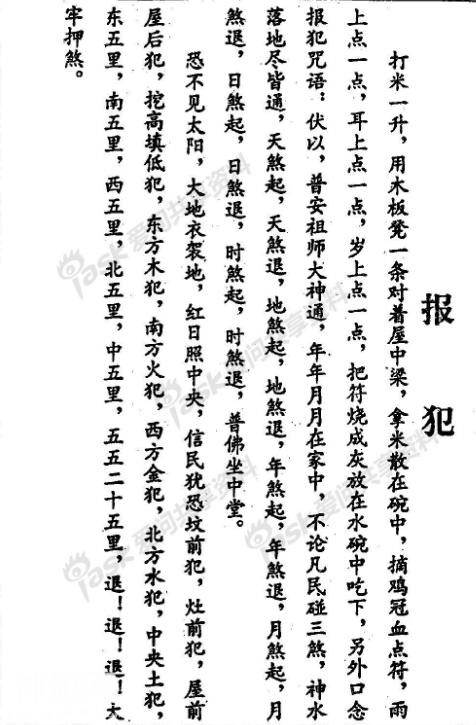 报犯
打米一升，用木板凳一条对着屋中梁，拿米散在碗中，摘鸡冠血点符，雨
上点一点，耳上点一点，岁上点一点，把符烧成灰放在水碗中吃下，另外口念
报犯咒语：伏以，普安祖师大神通，年年月月在家中，不论凡民碰三煞，神水
落地尽皆通，天煞起，天煞退，地煞起，地煞退，年煞起，年煞退，月煞起，月
煞退，日煞起，日煞退，时煞起，时煞退，普佛坐中堂。
恐不见太阳，大地衣袈地，红日照中央，信民犹恐坟前犯，灶前犯，屋前
屋后犯，挖高填低犯，东方木犯，南方火犯，西方金犯，北方水犯，中央土犯，
东五里，南五里，西五里，北五里，中五里，五五二十五里，退！退！退！大
牢押煞。
iask爱问共享资料
iask爱问共享资料
iask爱问共享资料
iask爱问共享资料